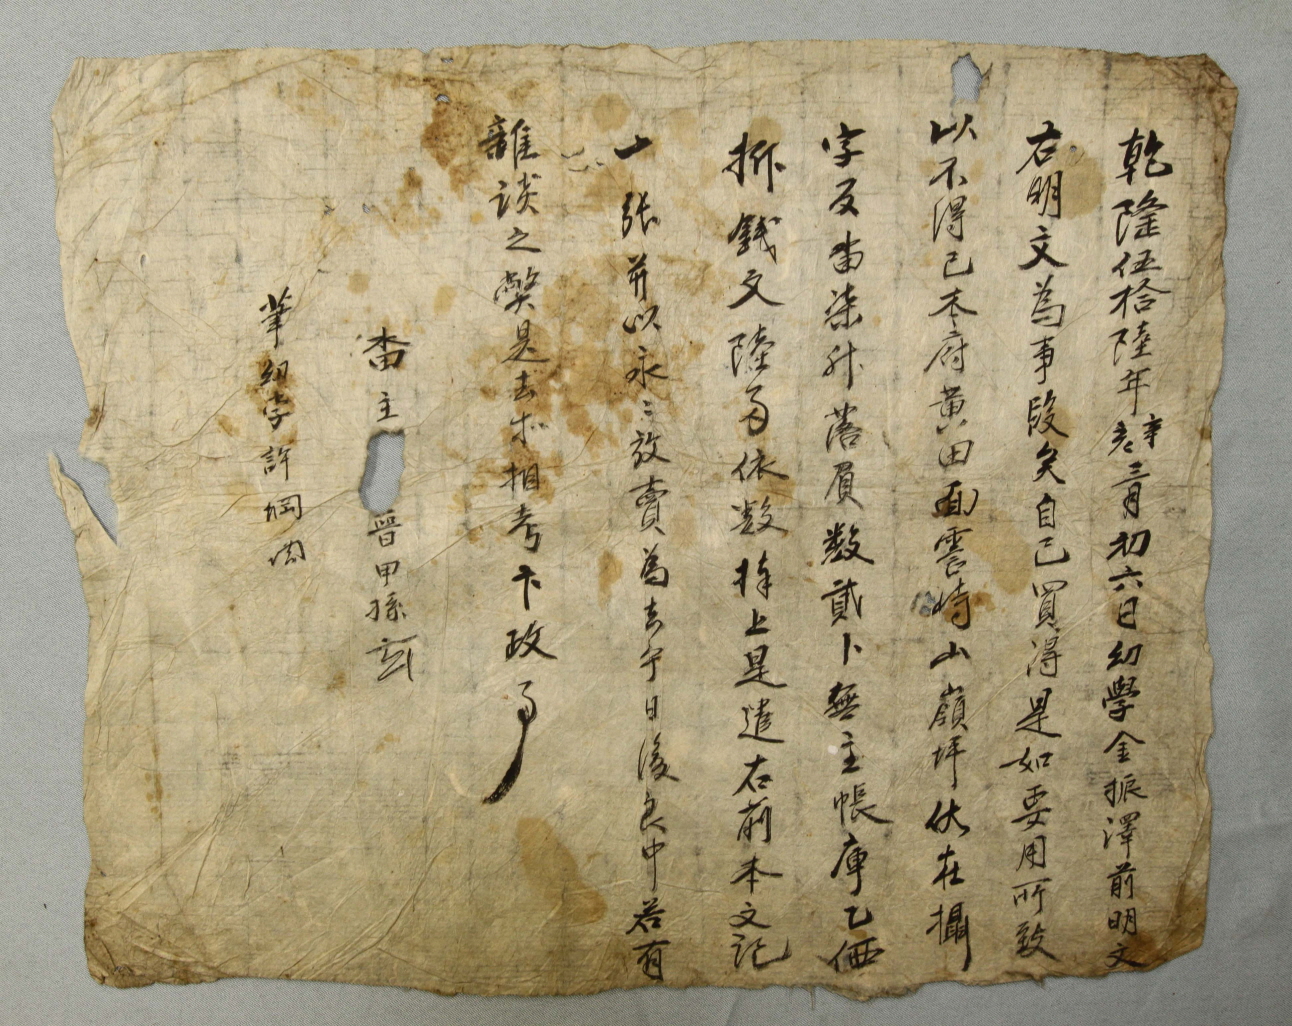 乾隆伍拾陸年辛亥三月初六日幼學金振澤前明文
右明文為事段矣自己買得是如要用所致
以不得已本府黃田面雲峙山嶺坪伏在攝
字反畓柒升落員數貳卜無主帳庫乙価
折錢文陸兩依數捧上是遣右前本文記
一張并以永〻放賣為去乎日後良中若有
雜談之弊是去等相考卞政事
畓主 晉甲孫
筆幼學許綱